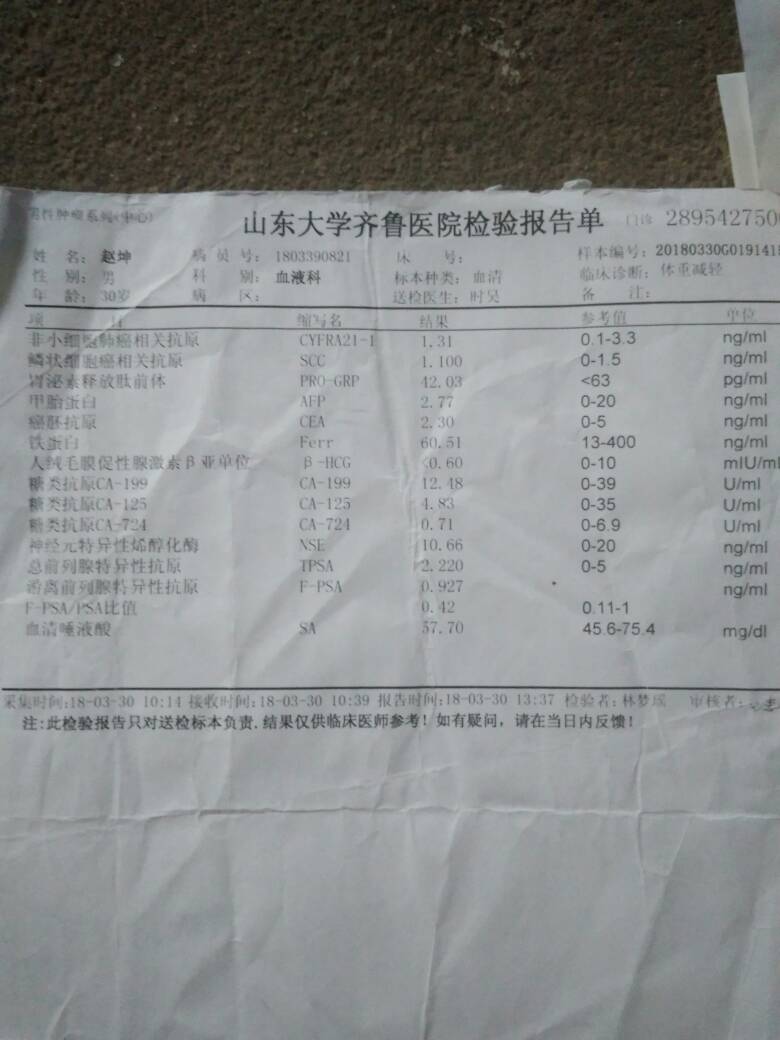 男性肿瘤系统(中心) 山东大学齐鲁医院检验报告单 门诊 2895427500
姓 名: 赵坤 病 员 号: 1803390821 床 号: 样本编号: 20180330G0191418
性 别: 男 科 别: 血液科 标本种类: 血清 临床诊断: 体重减轻
年 龄: 30岁 病 区: 送检医生: 时昊 备 注:
项 目 缩写名 结果 参考值 单位
非小细胞肺癌相关抗原 CYFRA21-1 1.31 0.1-3.3 ng/ml
鳞状细胞癌相关抗原 SCC 1.100 0-1.5 ng/ml
胃泌素释放肽前体 PRO-GRP 42.03 <63 pg/ml
甲胎蛋白 AFP 2.77 0-20 ng/ml
癌胚抗原 CEA 2.30 0-5 ng/ml
铁蛋白 Ferr 60.51 13-400 ng/ml
人绒毛膜促性腺激素β亚单位 β-HCG <0.60 0-10 mIU/ml
糖类抗原CA-199 CA-199 12.48 0-39 U/ml
糖类抗原CA-125 CA-125 4.83 0-35 U/ml
糖类抗原CA-724 CA-724 0.71 0-6.9 U/ml
神经元特异性烯醇化酶 NSE 10.66 0-20 ng/ml
总前列腺特异性抗原 TPSA 2.220 0-5 ng/ml
游离前列腺特异性抗原 F-PSA 0.927 ng/ml
F-PSA/PSA比值 0.42 0.11-1
血清唾液酸 SA 57.70 45.6-75.4 mg/dl
采集时间:18-03-30 10:14 接收时间:18-03-30 10:39 报告时间:18-03-30 13:37 检验者: 林梦瑶 审核者:
注:此检验报告只对送检标本负责.结果仅供临床医师参考! 如有疑问, 请在当日内反馈!